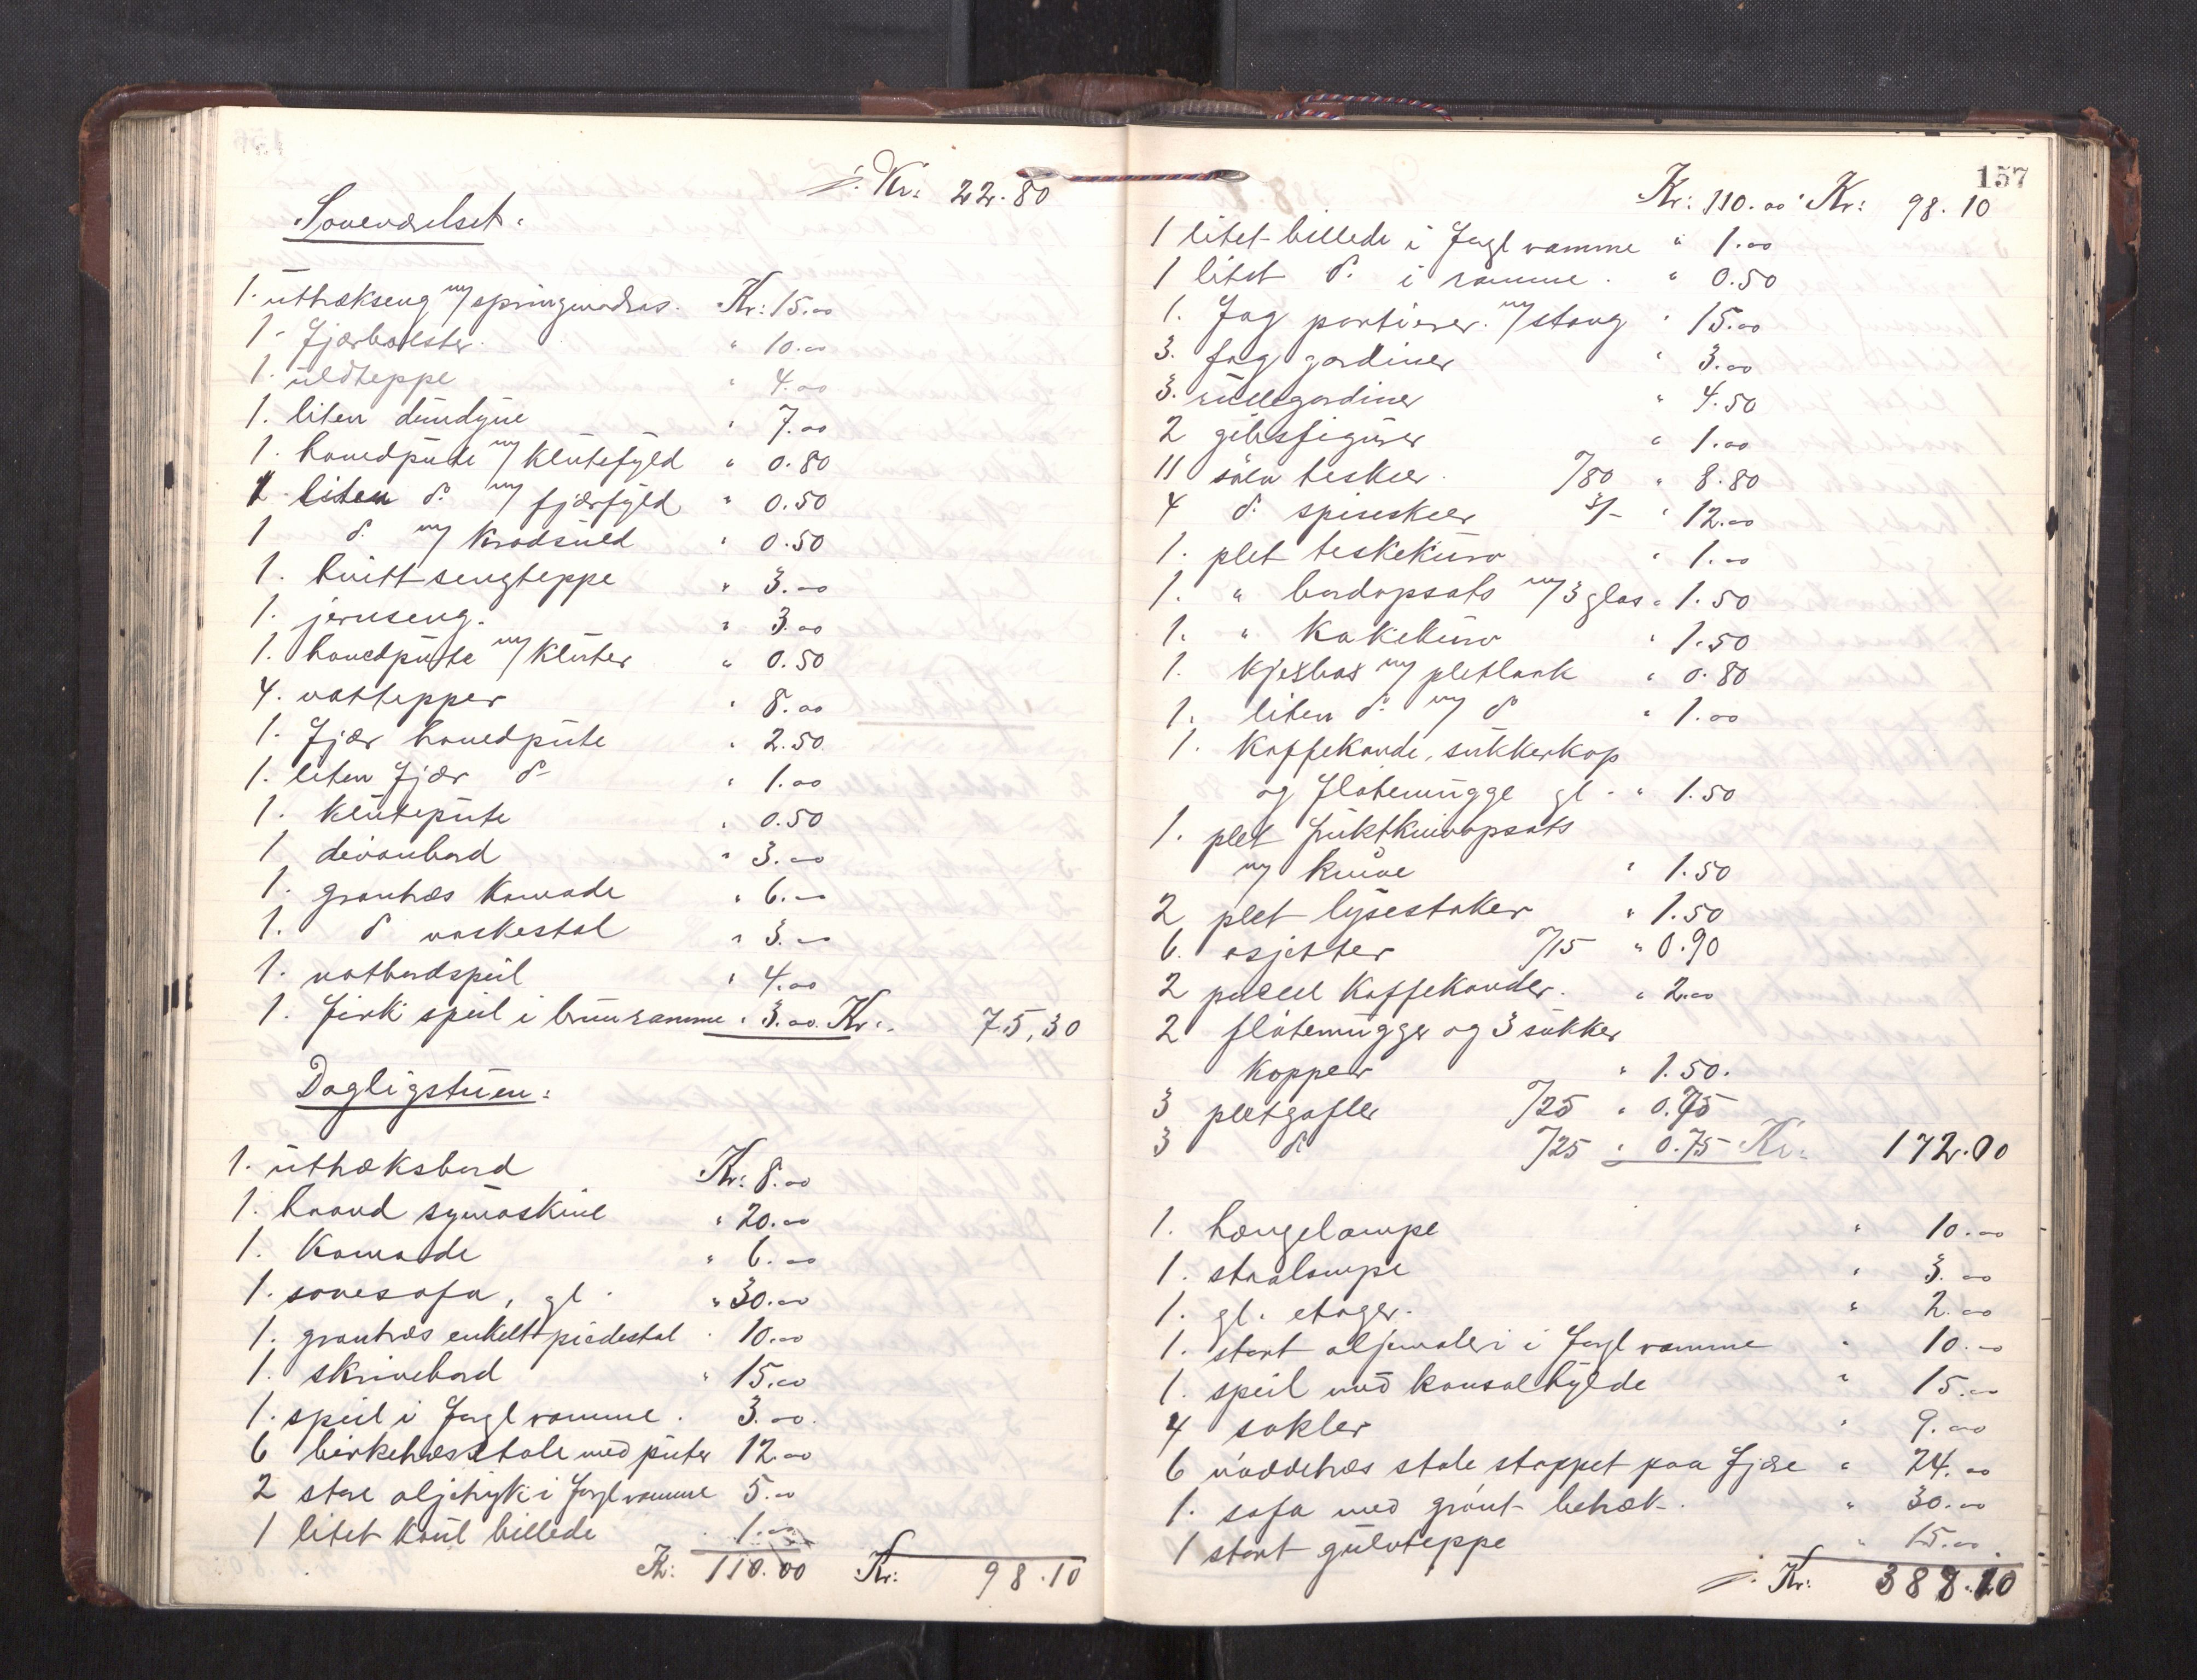 Kr: 22.80
Soveværelset:
1. uttrækseng m/springmadras. Kr: 15.00
1. fjærbolster. " 10.00
1. uldteppe " 4.00
1. liten dundyne " 7.00
1. hovedpute m/ klutefyld " 0.80
1 liten do m/ fjærfyld " 0.50
1 do m/ Kradsuld " 0.50
1. hvitt sengteppe " 3.00
1. jernseng. " 3.00
1. hovedpute m/ kluter " 0.50
4. vattepper " 8.00
1. fjær hovedpute " 2.50
1. liten fjær do " 1.00
1. klutepute " 0.50
1 divanbord " 3.00
1. grantræs Komode " 6.00
1. do vaskestol " 3.00
1. natbordspeil " 4.00
1. firk. speil i brun ramme " 3.00. Kr: 75,30
Dagligstuen:
1. uttræksbord Kr: 8.00
1. haand symaskine " 20.00
1. Komode " 6.00
1. sovesofa, gl. " 30.00
1. grantræs enkelt piedestal " 10.00
1. skrivebord " 15.00
1. speil i forgl ramme. 3.00.
6 birketræs stole med puter 12.00
2 store oljetryk i forgl ramme 5.00
1 litet kul billede 1.00
Kr: 110.00 Kr: 98.10
157
Kr: 110.00 Kr: 98.10
1 litet billede i forgl ramme " 1.00
1 litet do i ramme. " 0.50
1. fag portierer. m/stang " 15.00
3. fag gardiner " 3.00
3. rullegardiner " 4.50
2 gibsfigurer " 1.00
11 sølv teskeer. 7/80 " 8.80
4 do spiseskeer 3/- " 12.00
1. plet teskekurv " 1.00
1. " bordopsats m/3 glas " 1.50
1. " Kakekurv " 1.50
1. Kjexbox m/ pletlaak " 0.80
1. liten do m/ do " 1.00
1. Kaffekande, sukkerkop
og fløtemugge gl. " 1.50
1. plet fruktknivopsats
m/ knive " 1.50
2 plet lysestaker " 1.50
6. asjetter 7/15 " 0.90
2 plett Kaffekander. " 2.00
2 fløtemugger og 3 sukker
Kopper " 1.50.
3 pletgafler 7/25 " 0.75
3 do 7/25 " 0.75 Kr: 172.00
1. hængelampe " 10.00
1. staalampe " 3.00
1. gl. etager. " 2.00
1. stort oljemaleri i forgl ramme " 10.00
1. speil med konsolhylde " 15.00
4 sokler " 9.00
6 nøddetræs stole stoppet paa fjære " 24.00
1. sofa med grønt betræk. " 30.00
1 stort gulvteppe " 15.00.
Kr: 388.10